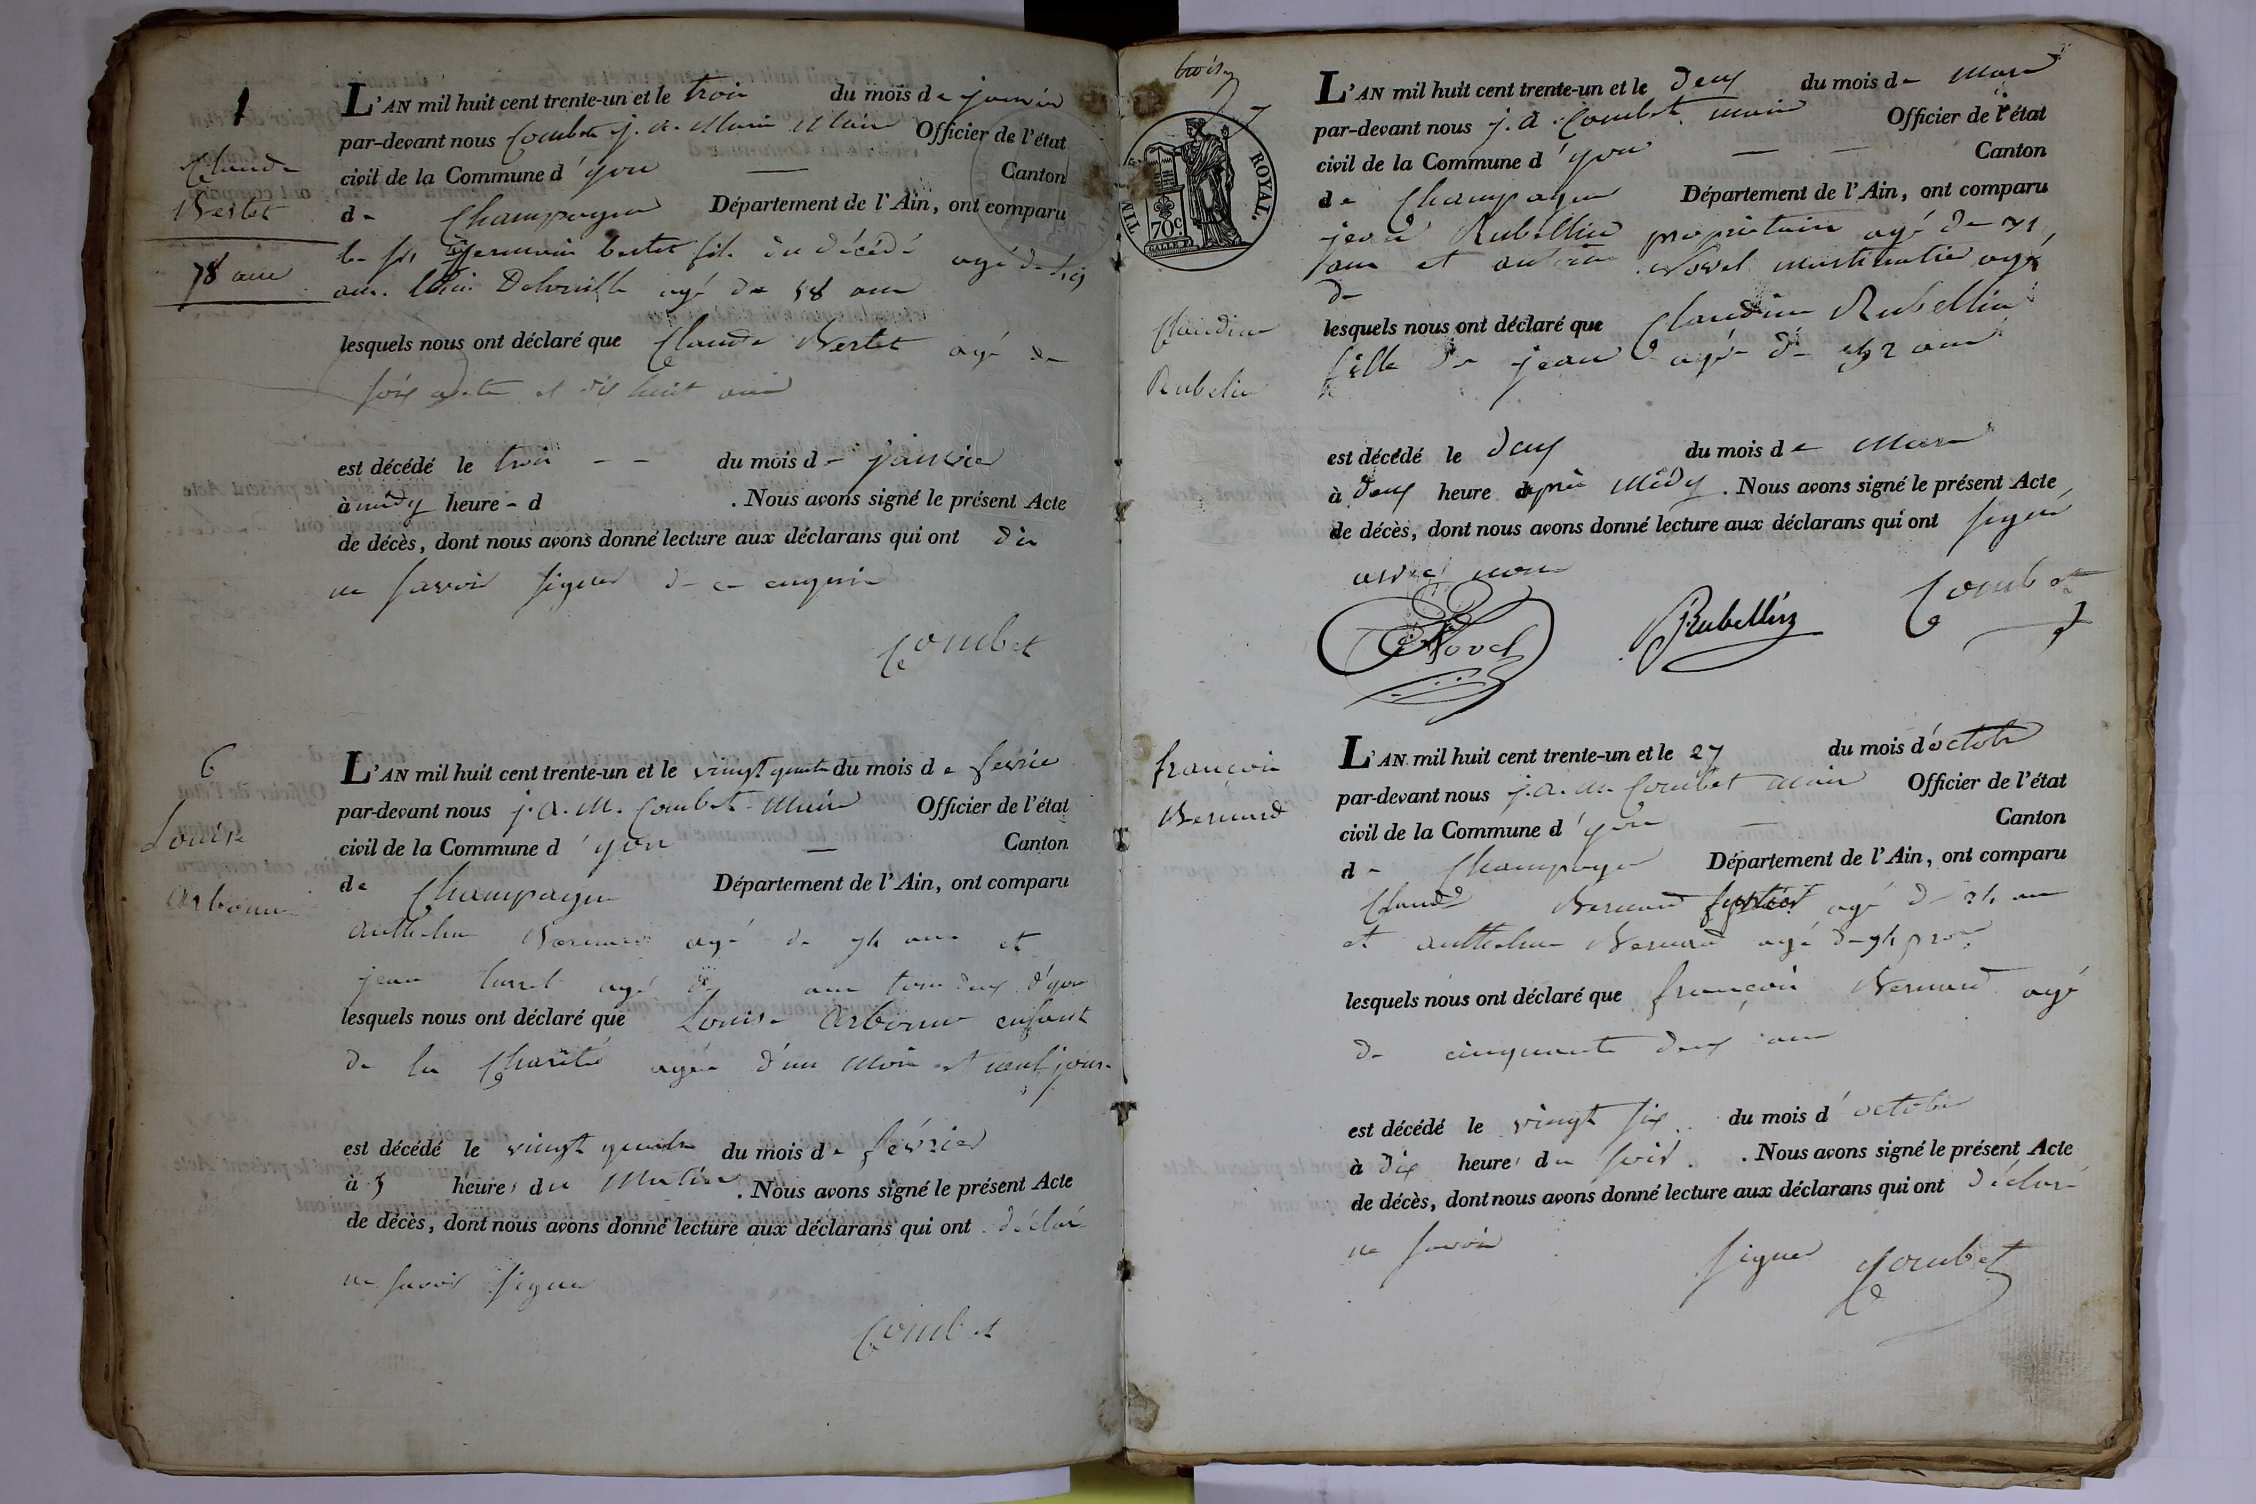 1
Claude
Bertet
78 ans
L'AN mil huit cent trente-un et le trois du mois de janvier
par-devant nous Combet j. a. Marie Maire Officier de l'état
civil de la Commune d'yon — Canton
de Champagne Département de l'Ain, ont comparu
le sr germain bertet fils du décédé agé de
ans. agé de 58 ans
lesquels nous ont déclaré que Claude Bertet agé de
soixante et dix huit ans
est décédé le trois – – du mois de janvier
à midy heure – d . Nous avons signé le présent Acte
de décès, dont nous avons donné lecture aux déclarans qui ont dit
ne savoir signer de ce enquis
Combet
6
Louise
Arbonne
L'AN mil huit cent trente-un et le vingt quatre du mois de fevrie
par-devant nous j. a. M. Combet Maire Officier de l'état
civil de la Commune d'yon — Canton
de Champagne Département de l'Ain, ont comparu
anthelme Bernard agé de 74 ans et
jean agé de ans tous deux d'yon
lesquels nous ont déclaré que Louise Arbonne enfant
de la Charité agée d'un Mois et neuf jours
est décédé le vingt quatre du mois de février
à 3 heures du Matin . Nous avons signé le présent Acte
de décès, dont nous avons donné lecture aux déclarans qui ont déclaré
ne savoir signer
Combet
trois
7
TIM ROYAL.
70c.
Claudine
Rubelin
L'AN mil huit cent trente-un et le deux du mois de Mars
par-devant nous j. a. Combet maire Officier de l'état
civil de la Commune d'yon — — Canton
de Champagne Département de l'Ain, ont comparu
jean Rubellin proprietaire agé de 71
ans et antoine Novel agé
de
lesquels nous ont déclaré que Claudine Rubellin
fille de jean agée de 42 ans
est décédé le deux du mois de Mars
à deux heure après Midy . Nous avons signé le présent Acte
de décès, dont nous avons donné lecture aux déclarans qui ont signé
avec nous
Novel Rubellin Combet
françois
Bernard
L'AN mil huit cent trente-un et le 27 du mois d'octobre
par-devant nous j. a. m. Combet maire Officier de l'état
civil de la Commune d'yon — Canton
de Champagne Département de l'Ain, ont comparu
Claude Bernard agé de 24 ans
et anthelme Bernard agé de 74
lesquels nous ont déclaré que françois Bernard agé
de cinquante deux ans
est décédé le vingt six du mois d'octobre
à dix heures du soir . Nous avons signé le présent Acte
de décès, dont nous avons donné lecture aux déclarans qui ont déclaré
ne savoir signer Combet